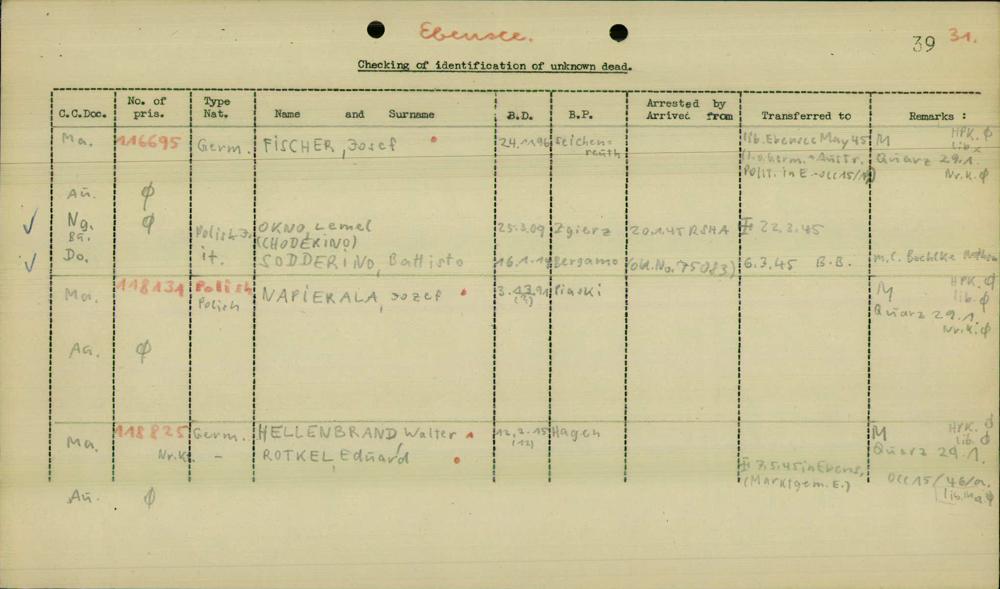 Ebensee.
39 31.
Checking of identification of unknown dead.
C.C.Doc. No. of pris. Type Nat. Name and Surname B.D. B.P. Arrested by Arrived from Transferred to Remarks :
Ma. 116695 Germ. FISCHER, Josef 24.11.96 lib. Ebensee May 45 M HPK. ø
lib. x
Quarz 29.1.
Polit. in E - OCC 15/ Nr.K. ø
Au. ø
Ng. ø Polish J. OKNO, Lemel 25.3.09 Zgierz 20.1.45 RSHA 22.2.45
Ba. (CHODEKINO)
Do. it. SODDERINO, Battisto 16.1.14 Bergamo (old.No. 75083) 6.3.45 B.B. m.C.
Ma. 118131 Polish NAPIERALA, Jozef Piaski M HPK. ø
Polish (?) lib. ø
Quarz 29.1.
Nr.K. ø
Au. ø
Ma. 118825 Germ. HELLENBRAND Walter 12.2.15 Hagen M HPK. ø
(12) lib. ø
Nr.K. - ROTKEL, Eduard Quarz 29.1.
7.5.45 in Ebens. OCC 15/46/a.
(Marktgem. E.) lib. Ma. ø
Au. ø